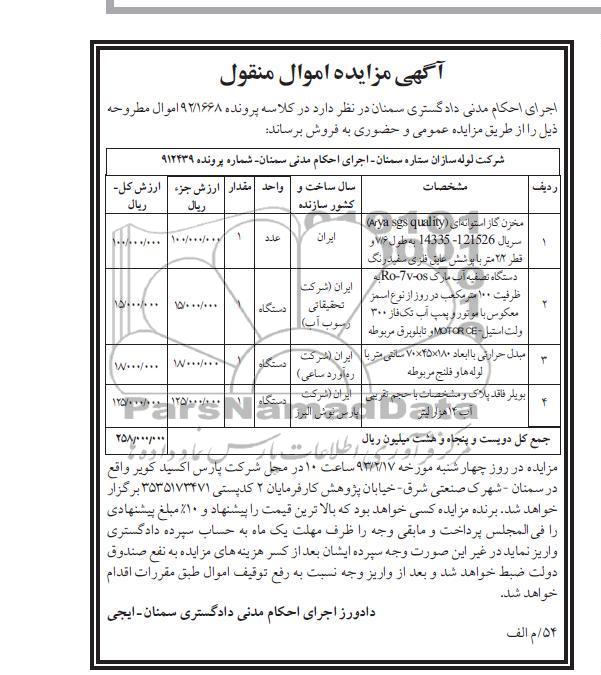 آگهی مزایده اموال منقول
اجرای احکام مدنی دادگستری سمنان در نظر دارد در کلاسه پرونده ۹۲/۱۶۶۸ اموال مطروحه
ذیل را از طریق مزایده عمومی و حضوری به فروش برساند:
شرکت لوله سازان ستاره سمنان - اجرای احکام مدنی سمنان - شماره پرونده ۹۱۲۴۳۹
ردیف مشخصات سال ساخت و کشور سازنده واحد مقدار ارزش جزء ریال ارزش کل- ریال
۱ مخزن گاز استوانه‌ای (Arya sgs quality) ایران عدد ۱ ۱۰۰/۰۰۰/۰۰۰ ۱۰۰/۰۰۰/۰۰۰
سریال 121526- 14335 به طول ۷/۶ و
قطر ۲/۲ متر با پوشش عایق فلزی سفیدرنگ
۲ دستگاه تصفیه آب مارک Ro-7v-os به ایران (شرکت تحقیقاتی رسوب آب) دستگاه ۱ ۱۵/۰۰۰/۰۰۰ ۱۵/۰۰۰/۰۰۰
ظرفیت ۱۰۰ مترمکعب در روز از نوع اسمز
معکوس با موتور و پمپ آب تک‌فاز ۳۰۰
ولت استیل - MOTOR.CE و تابلوبرق مربوطه
۳ مبدل حرارتی با ابعاد ۱۸۰×۴۵×۷۰ سانتی متر با ایران (شرکت ره‌آورد ساعی) دستگاه ۱ ۱۸/۰۰۰/۰۰۰ ۱۸/۰۰۰/۰۰۰
لوله‌ها و فلنج مربوطه
۴ بویلر فاقد پلاک و مشخصات با حجم تقریبی ایران (شرکت پارس نوش البرز دستگاه ۱ ۱۲۵/۰۰۰/۰۰۰ ۱۲۵/۰۰۰/۰۰۰
آب ۱۴ هزار لیتر
جمع کل دویست و پنجاه و هشت میلیون ریال ۲۵۸/۰۰۰/۰۰۰
مزایده در روز چهارشنبه مورخه ۹۳/۲/۱۷ ساعت ۱۰ در محل شرکت پارس اکسید کویر واقع
در سمنان - شهرک صنعتی شرق - خیابان پژوهش کارفرمایان ۲ کدپستی ۳۵۳۵۱۷۳۴۷۱ برگزار
خواهد شد. برنده مزایده کسی خواهد بود که بالاترین قیمت را پیشنهاد و ۱۰٪ مبلغ پیشنهادی
را فی‌المجلس پرداخت و مابقی وجه را ظرف مهلت یک ماه به حساب سپرده دادگستری
واریز نماید در غیر این صورت وجه سپرده ایشان بعد از کسر هزینه‌های مزایده به نفع صندوق
دولت ضبط خواهد شد و بعد از واریز وجه نسبت به رفع توقیف اموال طبق مقررات اقدام
خواهد شد.
دادورز اجرای احکام مدنی دادگستری سمنان - ایجی
۵۴/م الف
ParsNamadData